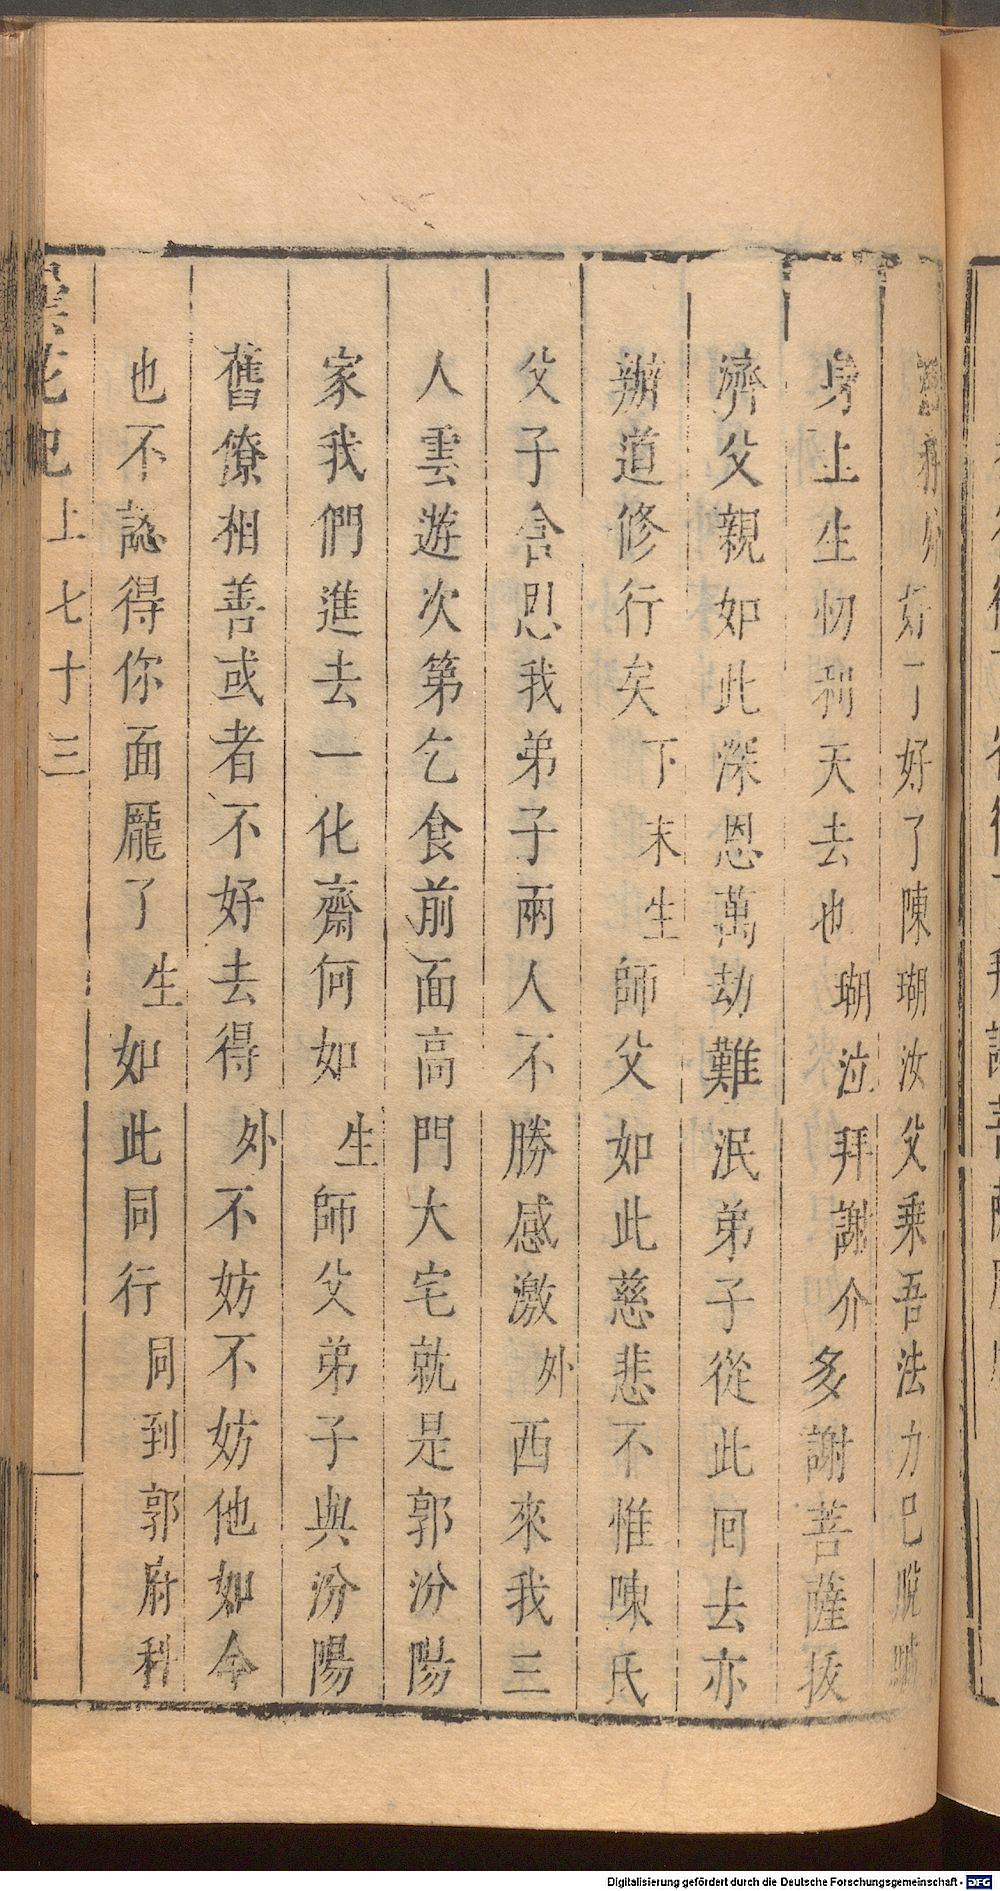 外好了好了陳瑚汝父乘吾法力已脫
身上生忉利天去也瑚泣拜謝介多謝菩薩拔
濟父親如此深恩萬劫難泯弟子從此回去亦
辦道修行矣下末生師父如此慈悲不惟陳氏
父子含恩我弟子兩人不勝感激外西來我三
人雲遊次第乞食前面高門大宅就是郭汾陽
家我們進去一化齋何如生師父弟子與汾陽
舊僚相善或者不好去得外不妨不妨他如今
也不認得你面龐了生如此同行同到郭府科
曇花記上七十三
Digitalisierung gefördert durch die Deutsche Forschungsgemeinschaft - DFG